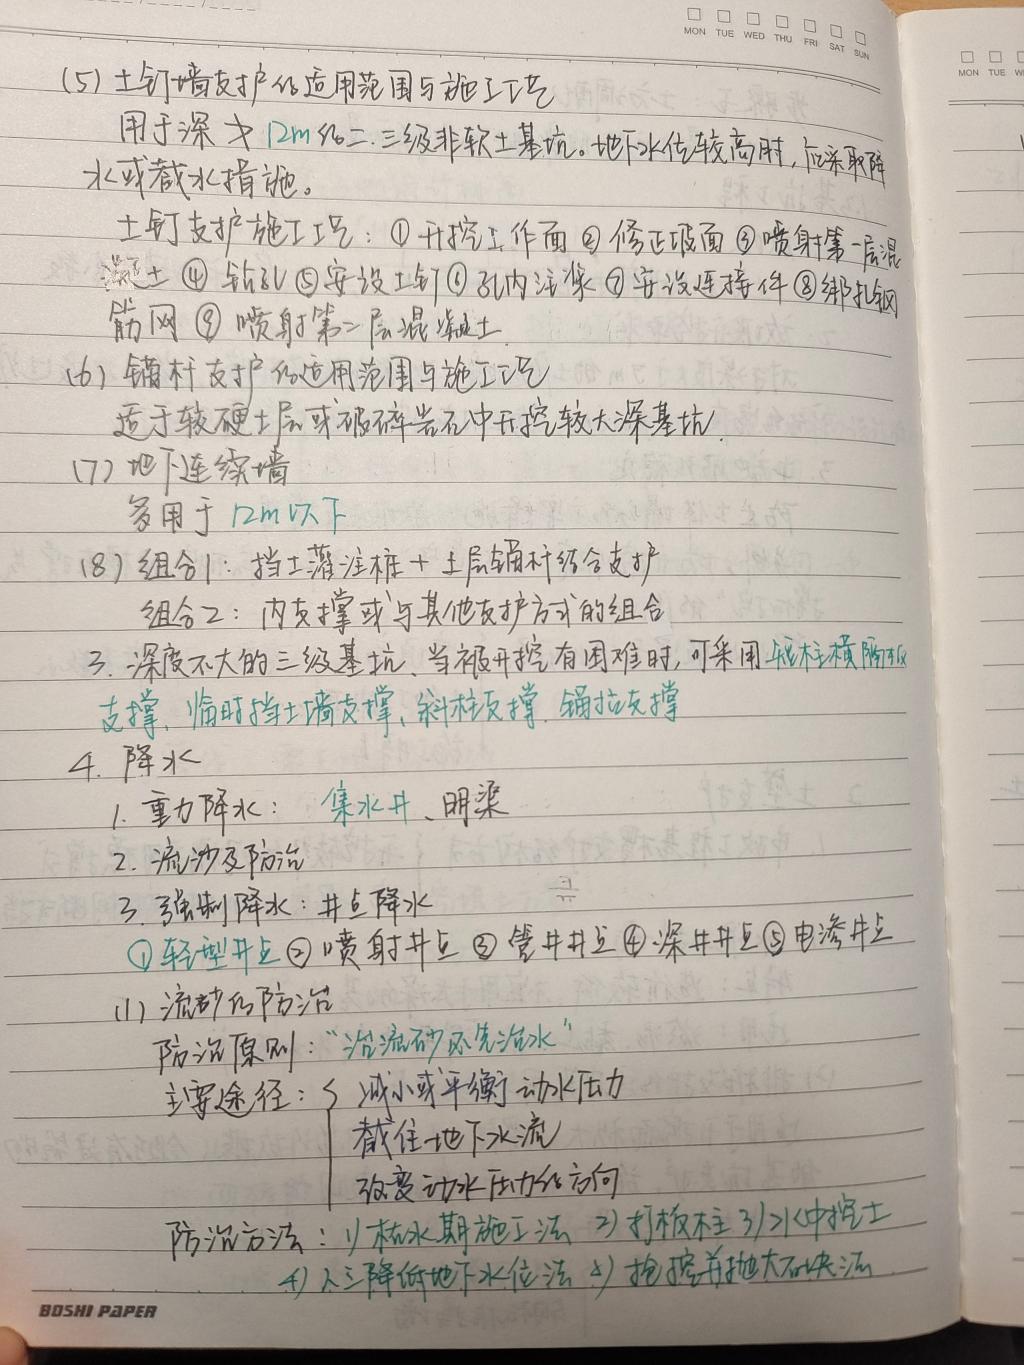 MON TUE WED THU FRI SAT SUN
MON TUE
(5) 土钉墙支护的适用范围与施工工艺
用于深 12m的二.三级非软土基坑。地下水位较高时,应采取降
水或截水措施。
土钉支护施工工艺:①开挖工作面②修正坡面③喷射第一层混
凝土④钻孔⑤安设土钉⑥孔内注浆⑦安设连接件⑧绑扎钢
筋网⑨喷射第二层混凝土.
(6) 锚杆支护的适用范围与施工工艺
适于较硬土层或破碎岩石中开挖较大深基坑.
(7) 地下连续墙
多用于12m以下
(8) 组合1:挡土灌注桩+土层锚杆结合支护
组合2:内支撑或与其他支护方式的组合
3.深度不大的三级基坑、当被开挖有困难时,可采用短柱横隔板
支撑、临时挡土墙支撑、斜柱支撑、锚拉支撑
4.降水
1.重力降水:集水井、明渠
2.流沙及防治
3.强制降水:井点降水
①轻型井点②喷射井点③管井井点④深井井点⑤电渗井点
(1) 流砂的防治
防治原则:“治流砂必先治水”
主要途径:{ 减小或平衡动水压力
截住地下水流
改变动水压力的方向
防治方法:1)枯水期施工法 2)打板桩 3)水中挖土
4)人工降低地下水位法 5)抢挖并抛大石块法
BOSHI PAPER